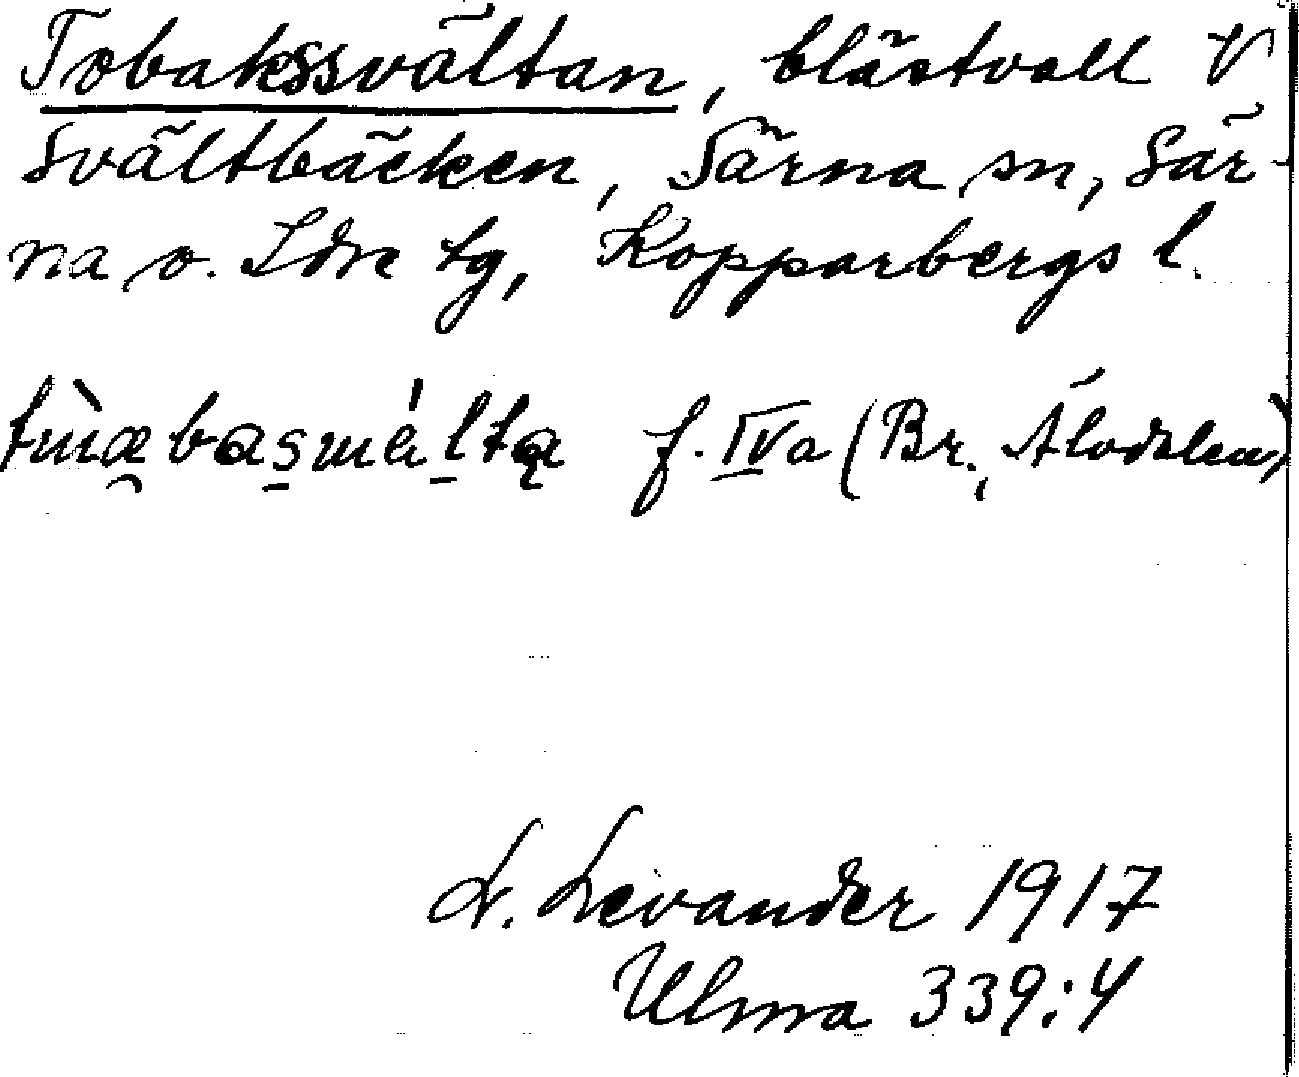 Tobakssvältan, blästvall V
Svältbäcken, Särna sn, Sär-
na o. Idre tg, Kopparbergs l.
f. IVa (Br., Älvdalen)
L. Levander 1917
Ulma 339:4